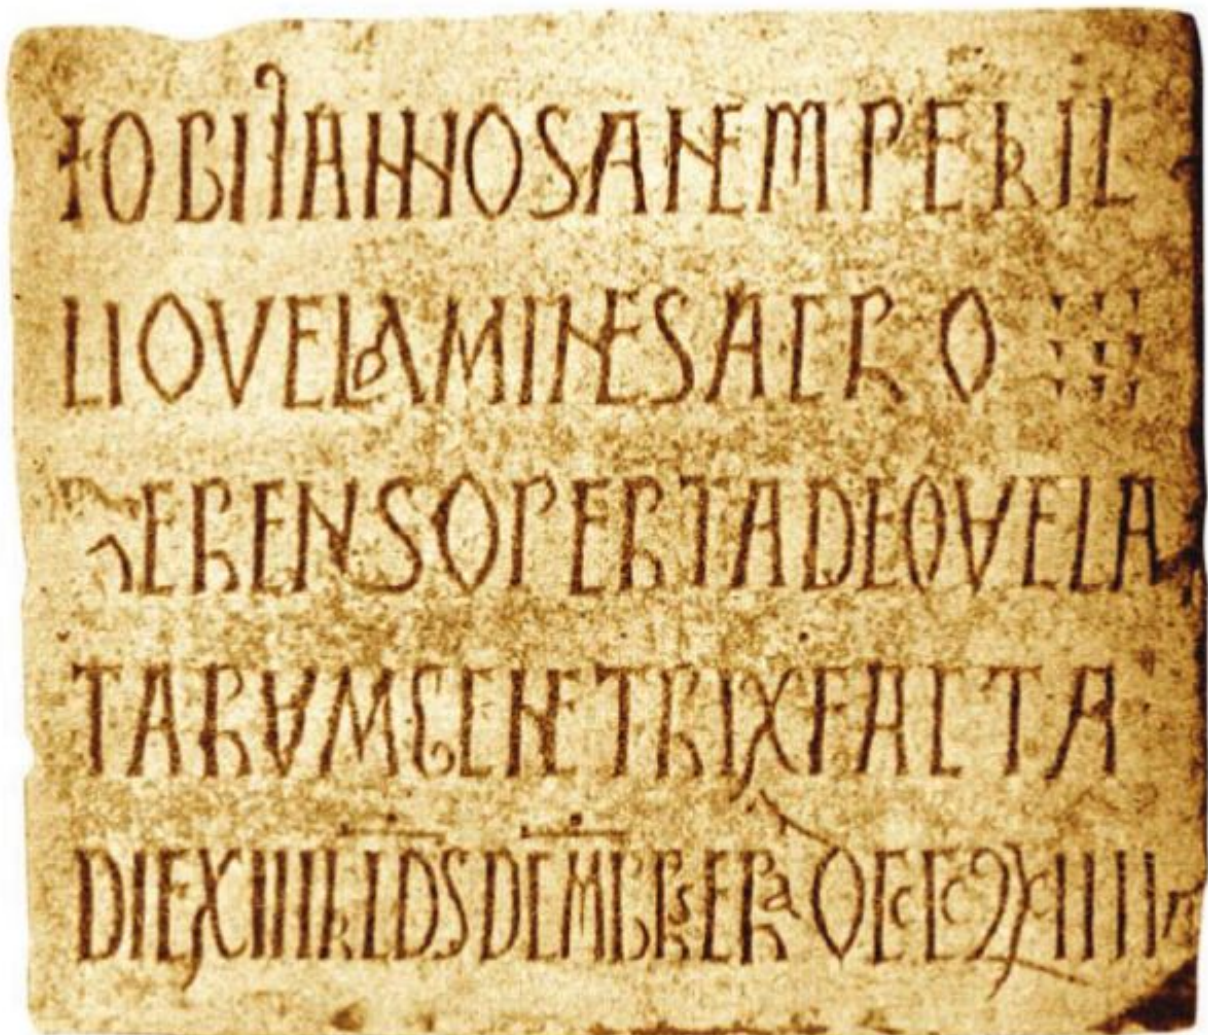 +OBITANNOSANEMPERIL
LIOVELAMINESACRO
HERENSOPERTADEOVELA
TARVMGENETRIXFACTA
DIEXIIIIKLDSDEMBRSERA